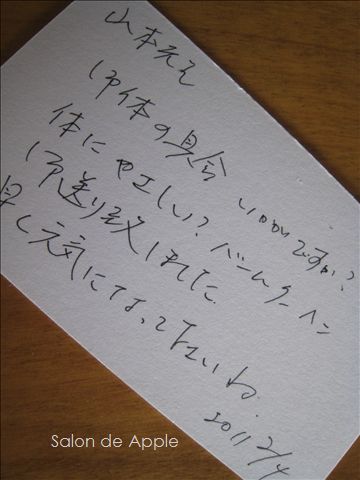 山本先生
御体の具合いかがですか?
体にやさしい?バームクーヘン
御送り致しました
早く元気になって下さいね。
2011 2/4
Salon de Apple